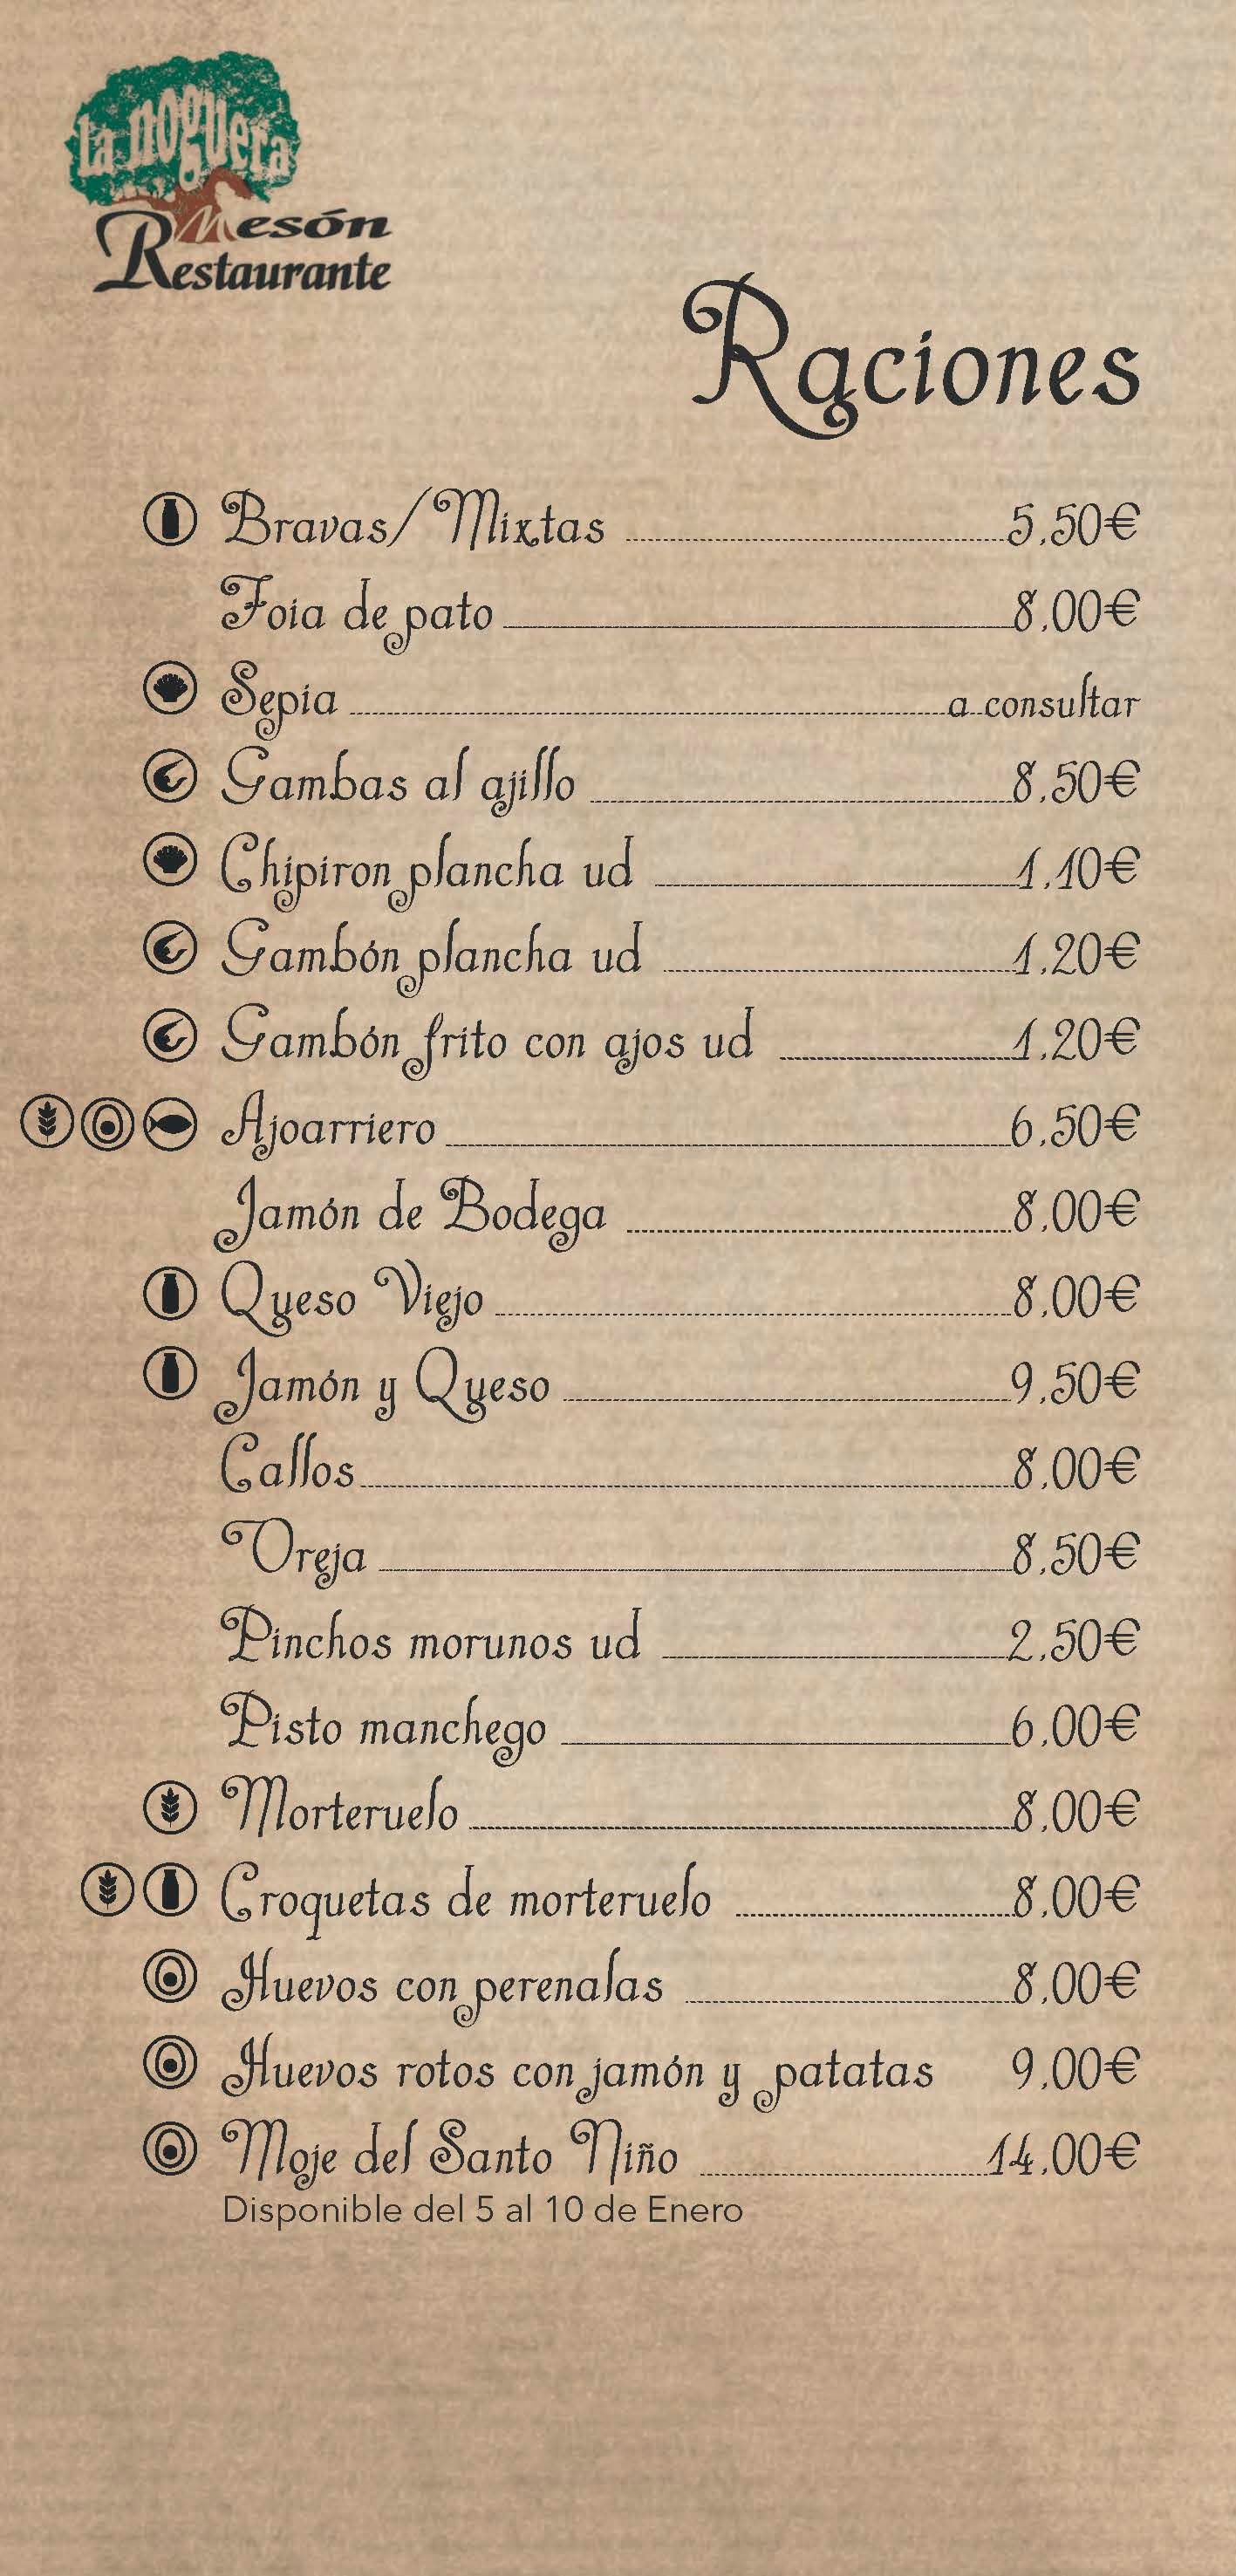 la noguera
Mesón
Restaurante
Raciones
Bravas/Mixtas 5,50€
Foia de pato 8,00€
Sepia a consultar
Gambas al ajillo 8,50€
Chipiron plancha ud 1,10€
Gambón plancha ud 1,20€
Gambón frito con ajos ud 1,20€
Ajoarriero 6,50€
Jamón de Bodega 8,00€
Queso Viejo 8,00€
Jamón y Queso 9,50€
Callos 8,00€
Oreja 8,50€
Pinchos morunos ud 2,50€
Pisto manchego 6,00€
Morteruelo 8,00€
Croquetas de morteruelo 8,00€
Huevos con perenalas 8,00€
Huevos rotos con jamón y patatas 9,00€
Moje del Santo Niño 14,00€
Disponible del 5 al 10 de Enero